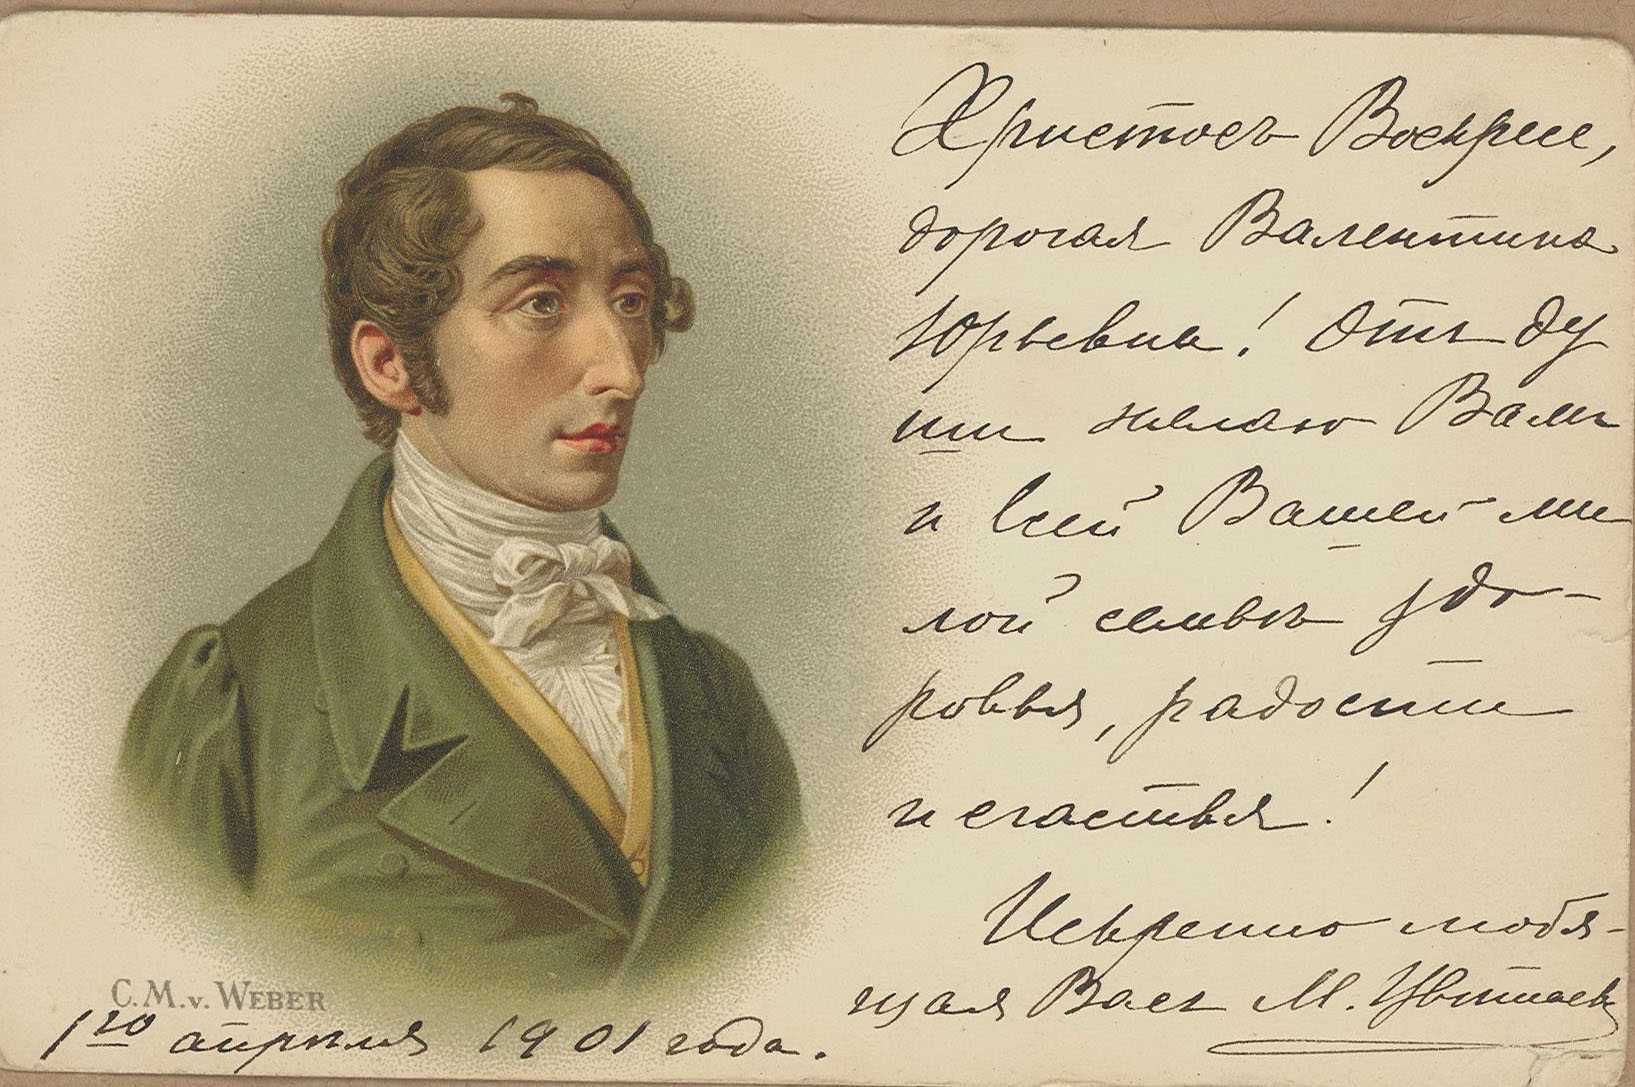 Христосъ Воскресе,
дорогая Валентина
Юрьевна! Отъ ду
ши желаю Вамъ
и всей Вашей ми
лой семьѣ здо-
ровья, радости
и счастья!
Искренно любя-
щая Васъ М. Цвѣтаева
C. M. v. WEBER
1го апрѣля 1901 года.